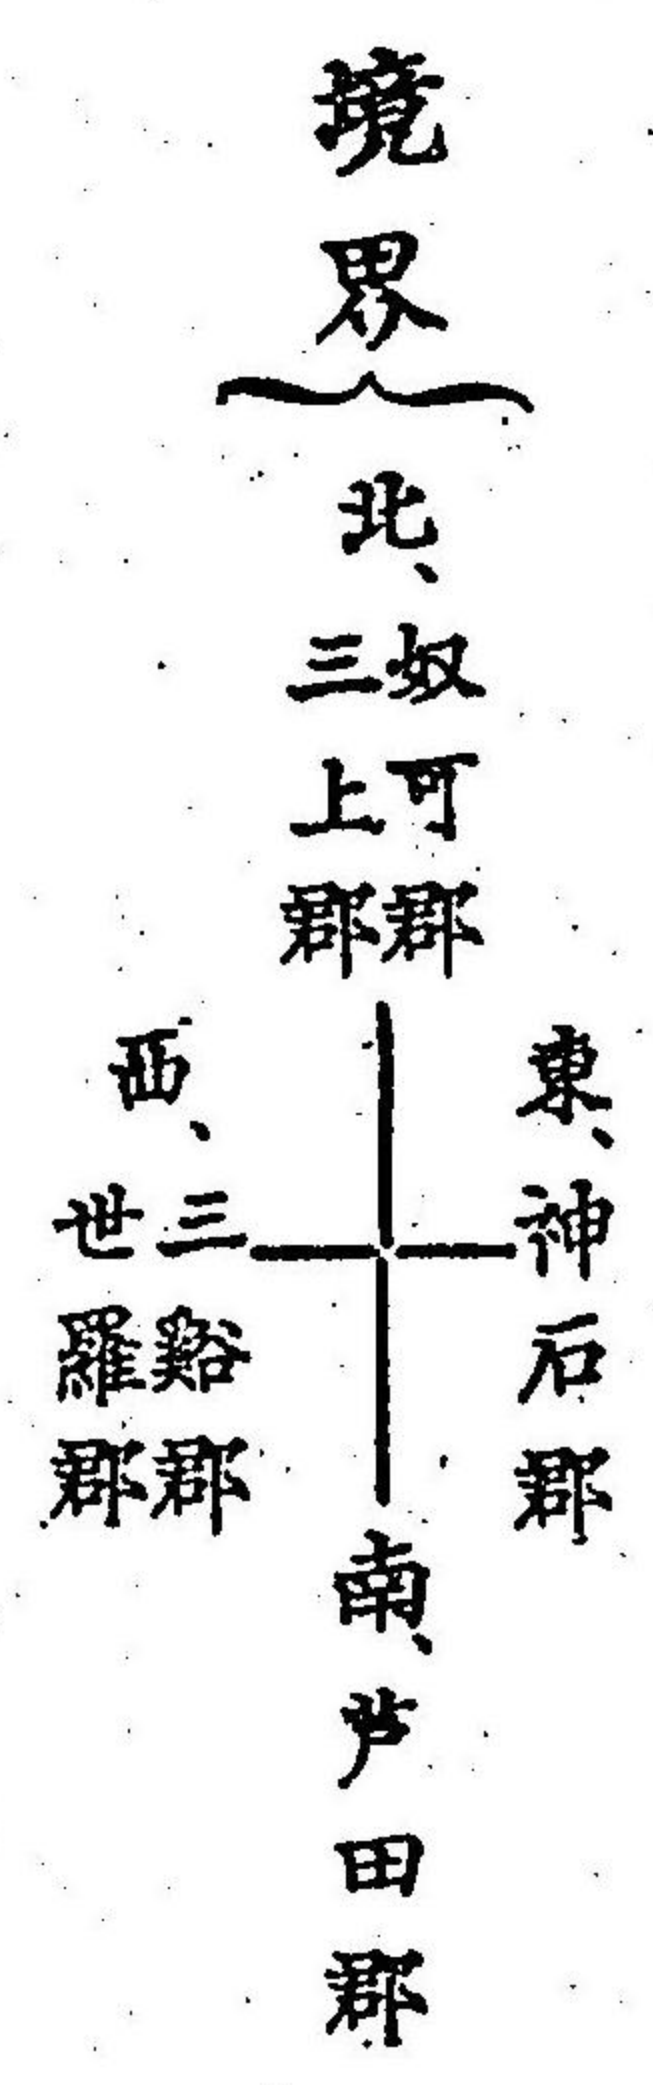 境界
北、
奴可郡
三上郡
東、
神石郡
西、
三谿郡
世羅郡
南、
芦田郡